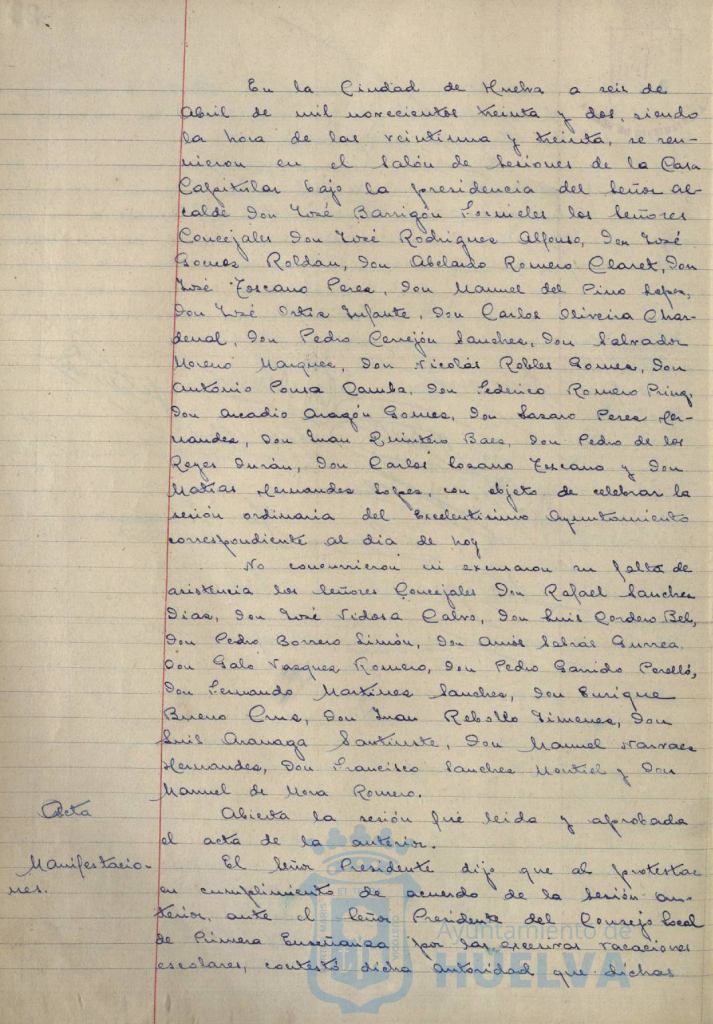 En la Ciudad de Huelva a seis de
Abril de mil novecientos treinta y dos, siendo
la hora de las veintiuna y treinta, se reu-
nieron en el salón de sesiones de la Casa
Capitular bajo la presidencia del Señor al-
calde Don José Barrigón Fornieles los Señores
Concejales Don José Rodriguez Alfonso, Don José
Gomez Roldán, Don Abelardo Romero Claret, Don
José Toscano Perez, Don Manuel del Pino Lopez,
Don José Ortiz Infante, Don Carlos Oliveira Char-
denal, Don Pedro Cerrejón Sanchez, Don Salvador
Moreno Marquez, Don Nicolás Robles Gomez, Don
Antonio Pousa Camba, Don Federico Romero
Don Arcadio Aragón Gomez, Don Lazaro Perez Her-
nandez, Don Juan Quintero Baez, Don Pedro de los
Reyes Durán, Don Carlos Lozano Toscano y Don
Matias Hernandez Lopez, con objeto de celebrar la
sesión ordinaria del Excelentisimo Ayuntamiento
correspondiente al dia de hoy
No concurrieron ni excusaron su falta de
asistencia los Señores Concejales Don Rafael Sanchez
Diaz, Don José Vidosa Calvo, Don Luis Cordero Bel,
Don Pedro Borrero Limón, Don Amós Sabrás Gurrea,
Don Galo Vazquez Romero, Don Pedro Garrido Perelló,
Don Fernando Martinez Sanchez, Don Enrique
Bueno Cruz, Don Juan Rebollo Jimenez, Don
Luis Aranaga Santiuste, Don Manuel Narvaez
Hernandez, Don Francisco Sanchez Montiel y Don
Manuel de Mora Romero.
Acta
Abierta la sesión fué leida y aprobada
el acta de la anterior.
Manifestacio-
nes.
El Señor Presidente dijo que al protestar
en cumplimiento de acuerdo de la sesión an-
terior, ante el Señor Presidente del Consejo local
de Primera Enseñanza por las excesivas vacaciones
escolares, contestó dicha autoridad que dichas
Ayuntamiento de
HUELVA